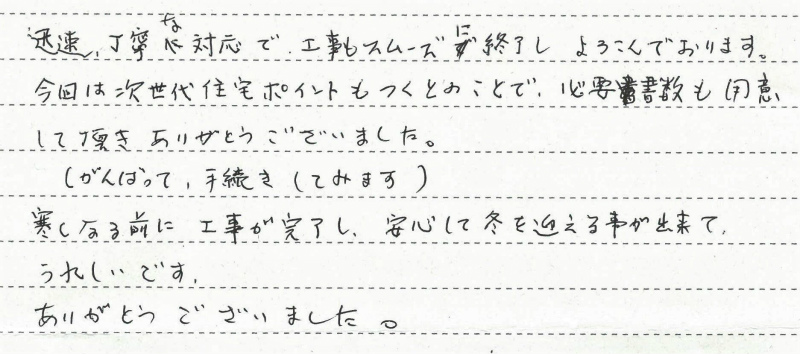 迅速、丁寧な対応で、工事もスムーズに終了し よろこんでおります。
今回は次世代住宅ポイントもつくとのことで、必要書数も用意
して頂き ありがとうございました。
(がんばって、手続きしてみます)
寒くなる前に 工事が完了し、安心して冬を迎える事が出来て、
うれしいです。
ありがとうございました。